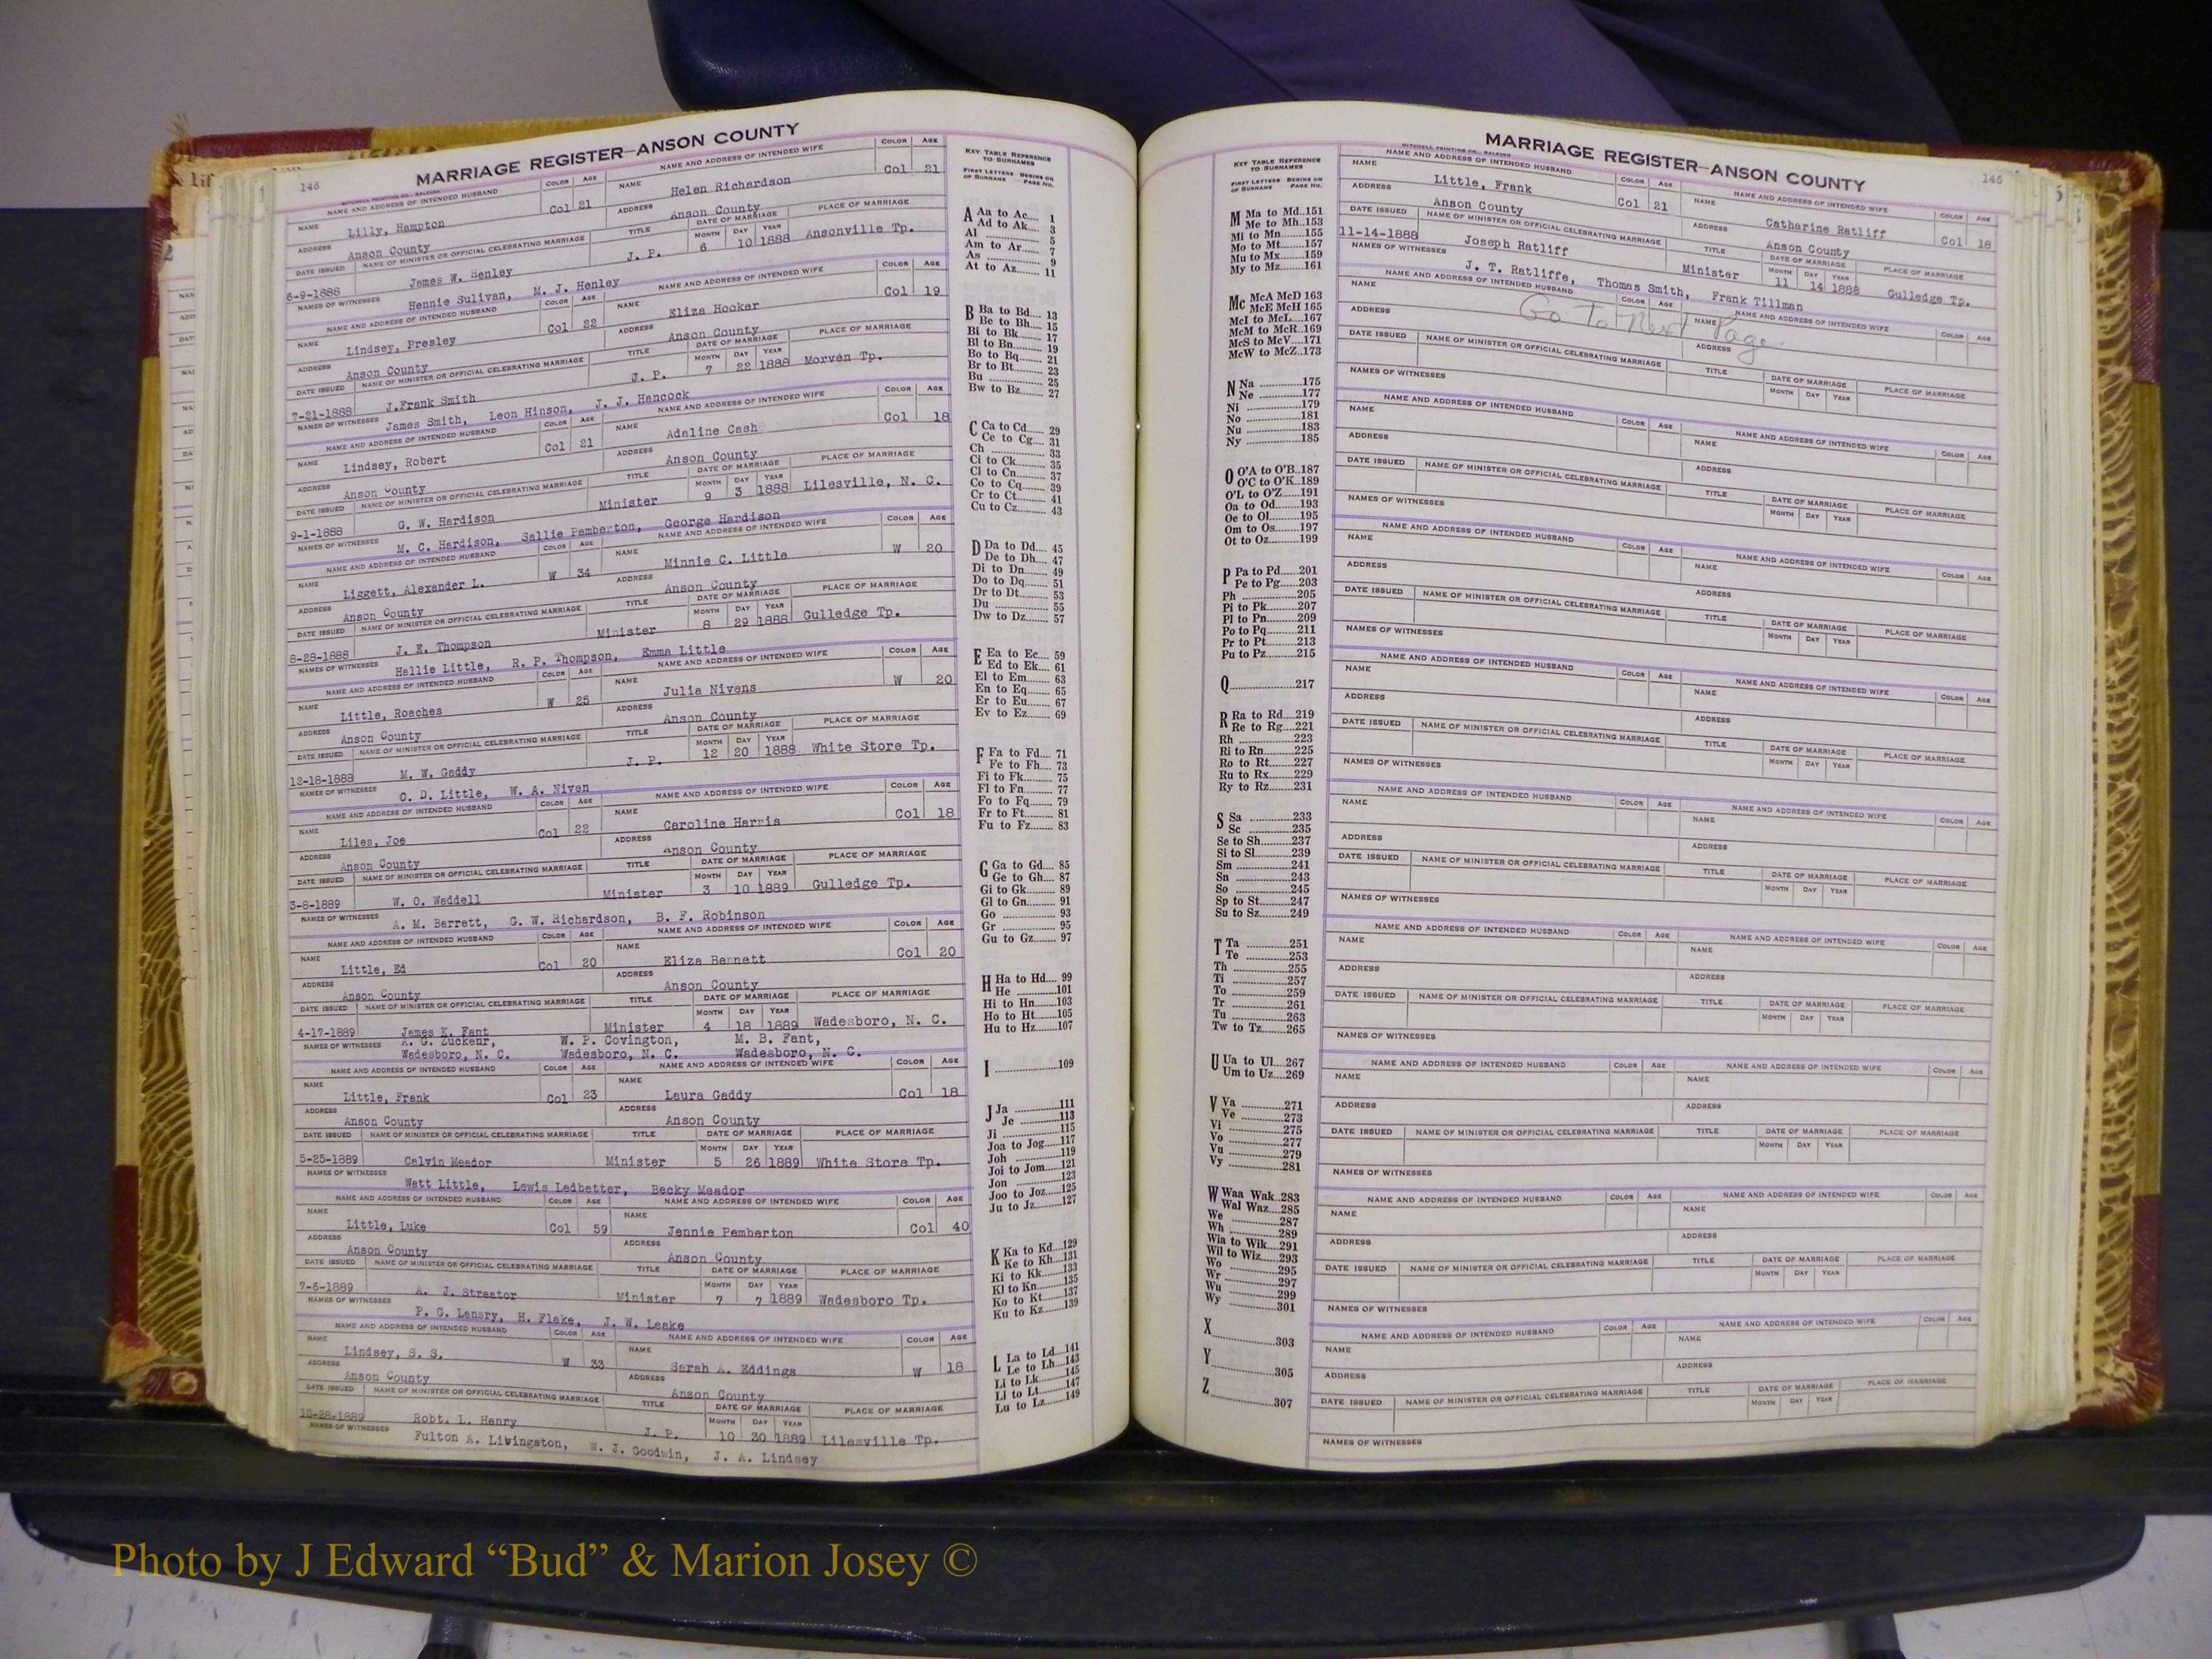 146
MARRIAGE REGISTER—ANSON COUNTY
MITCHELL PRINTING CO., RALEIGH
NAME AND ADDRESS OF INTENDED HUSBAND COLOR AGE NAME AND ADDRESS OF INTENDED WIFE COLOR AGE
NAME Lilly, Hampton Col 21 NAME Helen Richardson Col 21
ADDRESS Anson County ADDRESS Anson County
DATE ISSUED NAME OF MINISTER OR OFFICIAL CELEBRATING MARRIAGE TITLE DATE OF MARRIAGE MONTH DAY YEAR PLACE OF MARRIAGE
6-9-1888 James W. Henley J. P. 6 10 1888 Ansonville Tp.
NAMES OF WITNESSES Hennie Sulivan, M. J. Henley
NAME AND ADDRESS OF INTENDED HUSBAND COLOR AGE NAME AND ADDRESS OF INTENDED WIFE COLOR AGE
NAME Lindsey, Presley Col 22 NAME Eliza Hooker Col 19
ADDRESS Anson County ADDRESS Anson County
DATE ISSUED NAME OF MINISTER OR OFFICIAL CELEBRATING MARRIAGE TITLE DATE OF MARRIAGE MONTH DAY YEAR PLACE OF MARRIAGE
7-21-1888 J.Frank Smith J. P. 7 22 1888 Morven Tp.
NAMES OF WITNESSES James Smith, Leon Hinson, J. J. Hancock
NAME AND ADDRESS OF INTENDED HUSBAND COLOR AGE NAME AND ADDRESS OF INTENDED WIFE COLOR AGE
NAME Lindsey, Robert Col 21 NAME Adaline Cash Col 18
ADDRESS Anson County ADDRESS Anson County
DATE ISSUED NAME OF MINISTER OR OFFICIAL CELEBRATING MARRIAGE TITLE DATE OF MARRIAGE MONTH DAY YEAR PLACE OF MARRIAGE
9-1-1888 G. W. Hardison Minister 9 3 1888 Lilesville, N. C.
NAMES OF WITNESSES M. C. Hardison, Sallie Pemberton, George Hardison
NAME AND ADDRESS OF INTENDED HUSBAND COLOR AGE NAME AND ADDRESS OF INTENDED WIFE COLOR AGE
NAME Liggett, Alexander L. W 34 NAME Minnie C. Little W 20
ADDRESS Anson County ADDRESS Anson County
DATE ISSUED NAME OF MINISTER OR OFFICIAL CELEBRATING MARRIAGE TITLE DATE OF MARRIAGE MONTH DAY YEAR PLACE OF MARRIAGE
8-28-1888 J. E. Thompson Minister 8 29 1888 Gulledge Tp.
NAMES OF WITNESSES Hallie Little, R. P. Thompson, Emma Little
NAME AND ADDRESS OF INTENDED HUSBAND COLOR AGE NAME AND ADDRESS OF INTENDED WIFE COLOR AGE
NAME Little, Roaches W 25 NAME Julia Nivens W 20
ADDRESS Anson County ADDRESS Anson County
DATE ISSUED NAME OF MINISTER OR OFFICIAL CELEBRATING MARRIAGE TITLE DATE OF MARRIAGE MONTH DAY YEAR PLACE OF MARRIAGE
12-18-1888 M. W. Gaddy J. P. 12 20 1888 White Store Tp.
NAMES OF WITNESSES C. D. Little, W. A. Niven
NAME AND ADDRESS OF INTENDED HUSBAND COLOR AGE NAME AND ADDRESS OF INTENDED WIFE COLOR AGE
NAME Liles, Joe Col 22 NAME Caroline Harris Col 18
ADDRESS Anson County ADDRESS Anson County
DATE ISSUED NAME OF MINISTER OR OFFICIAL CELEBRATING MARRIAGE TITLE DATE OF MARRIAGE MONTH DAY YEAR PLACE OF MARRIAGE
3-8-1889 W. O. Waddell Minister 3 10 1889 Gulledge Tp.
NAMES OF WITNESSES A. M. Barrett, G. W. Richardson, B. F. Robinson
NAME AND ADDRESS OF INTENDED HUSBAND COLOR AGE NAME AND ADDRESS OF INTENDED WIFE COLOR AGE
NAME Little, Ed Col 20 NAME Eliza Bennett Col 20
ADDRESS Anson County ADDRESS Anson County
DATE ISSUED NAME OF MINISTER OR OFFICIAL CELEBRATING MARRIAGE TITLE DATE OF MARRIAGE MONTH DAY YEAR PLACE OF MARRIAGE
4-17-1889 James K. Fant Minister 4 18 1889 Wadesboro, N. C.
NAMES OF WITNESSES A. G. Zuckenr, W. P. Covington, M. B. Fant,
Wadesboro, N. C. Wadesboro, N. C. Wadesboro, N. C.
NAME AND ADDRESS OF INTENDED HUSBAND COLOR AGE NAME AND ADDRESS OF INTENDED WIFE COLOR AGE
NAME Little, Frank Col 23 NAME Laura Gaddy Col 18
ADDRESS Anson County ADDRESS Anson County
DATE ISSUED NAME OF MINISTER OR OFFICIAL CELEBRATING MARRIAGE TITLE DATE OF MARRIAGE MONTH DAY YEAR PLACE OF MARRIAGE
5-25-1889 Calvin Meador Minister 5 26 1889 White Store Tp.
NAMES OF WITNESSES Watt Little, Lewis Ledbetter, Becky Meador
NAME AND ADDRESS OF INTENDED HUSBAND COLOR AGE NAME AND ADDRESS OF INTENDED WIFE COLOR AGE
NAME Little, Luke Col 59 NAME Jennie Pemberton Col 40
ADDRESS Anson County ADDRESS Anson County
DATE ISSUED NAME OF MINISTER OR OFFICIAL CELEBRATING MARRIAGE TITLE DATE OF MARRIAGE MONTH DAY YEAR PLACE OF MARRIAGE
7-6-1889 A. J. Streator Minister 7 7 1889 Wadesboro Tp.
NAMES OF WITNESSES P. G. Lansry, H. Flake, J. W. Leake
NAME AND ADDRESS OF INTENDED HUSBAND COLOR AGE NAME AND ADDRESS OF INTENDED WIFE COLOR AGE
NAME Lindsey, S. S. W 33 NAME Sarah A. Eddings W 18
ADDRESS Anson County ADDRESS Anson County
DATE ISSUED NAME OF MINISTER OR OFFICIAL CELEBRATING MARRIAGE TITLE DATE OF MARRIAGE MONTH DAY YEAR PLACE OF MARRIAGE
10-28-1889 Robt. L. Henry J. P. 10 30 1889 Lilesville Tp.
NAMES OF WITNESSES Fulton A. Livingston, W. J. Goodwin, J. A. Lindsey
KEY TABLE REFERENCE
TO SURNAMES
FIRST LETTERS BEGINS ON
OF SURNAME PAGE NO.
A Aa to Ac.... 1
Ad to Ak.... 3
Al .............. 5
Am to Ar.... 7
As .............. 9
At to Az..... 11
B Ba to Bd.... 13
Be to Bh.... 15
Bi to Bk...... 17
Bl to Bn...... 19
Bo to Bq..... 21
Br to Bt...... 23
Bu .............. 25
Bw to Bz.... 27
C Ca to Cd..... 29
Ce to Cg.... 31
Ch .............. 33
Ci to Ck...... 35
Cl to Cn...... 37
Co to Cq..... 39
Cr to Ct...... 41
Cu to Cz..... 43
D Da to Dd.... 45
De to Dh.... 47
Di to Dn..... 49
Do to Dq.... 51
Dr to Dt..... 53
Du .............. 55
Dw to Dz.... 57
E Ea to Ec.... 59
Ed to Ek.... 61
El to Em.... 63
En to Eq..... 65
Er to Eu..... 67
Ev to Ez..... 69
F Fa to Fd.... 71
Fe to Fh.... 73
Fi to Fk...... 75
Fl to Fn...... 77
Fo to Fq..... 79
Fr to Ft...... 81
Fu to Fz..... 83
G Ga to Gd.... 85
Ge to Gh.... 87
Gi to Gk..... 89
Gl to Gn..... 91
Go .............. 93
Gr .............. 95
Gu to Gz..... 97
H Ha to Hd.... 99
He .............101
Hi to Hn......103
Ho to Ht......105
Hu to Hz.....107
I ..................109
J Ja .............111
Je .............113
Ji ..............115
Joa to Jog....117
Joh ............119
Joi to Jom....121
Jon ............123
Joo to Joz....125
Ju to Jz.......127
K Ka to Kd...129
Ke to Kh...131
Ki to Kk.....133
Kl to Kn.....135
Ko to Kt.....137
Ku to Kz.....139
L La to Ld...141
Le to Lh...143
Li to Lk.....145
Ll to Lt.....147
Lu to Lz.....149
KEY TABLE REFERENCE
TO SURNAMES
FIRST LETTERS BEGINS ON
OF SURNAME PAGE NO.
M Ma to Md..151
Me to Mh.153
Mi to Mn.......155
Mo to Mt......157
Mu to Mx.....159
My to Mz.....161
Mc McA McD 163
McE McH 165
McI to McL....167
McM to McR..169
McS to McV....171
McW to McZ..173
N Na ............175
Ne ............177
Ni ..............179
No ..............181
Nu ..............183
Ny ..............185
O O'A to O'B..187
O'C to O'K..189
O'L to O'Z.....191
Oa to Od........193
Oe to Ol........195
Om to Os.......197
Ot to Oz........199
P Pa to Pd.....201
Pe to Pg.....203
Ph ..............205
Pi to Pk.......207
Pl to Pn.......209
Po to Pq......211
Pr to Pt.......213
Pu to Pz......215
Q..................217
R Ra to Rd....219
Re to Rg....221
Rh ..............223
Ri to Rn......225
Ro to Rt......227
Ru to Rx.....229
Ry to Rz.....231
S Sa ............233
Sc ............235
Se to Sh......237
Si to Sl.......239
Sm ..............241
Sn ..............243
So ..............245
Sp to St......247
Su to Sz......249
T Ta ............251
Te ............253
Th ..............255
Ti ..............257
To ..............259
Tr ..............261
Tu ..............263
Tw to Tz.....265
U Ua to Ul...267
Um to Uz...269
V Va ............271
Ve ............273
Vi ..............275
Vo ..............277
Vu ..............279
Vy ..............281
W Waa Wak..283
Wal Waz...285
We ..............287
Wh ..............289
Wia to Wik....291
Wil to Wiz....293
Wo ..............295
Wr ..............297
Wu ..............299
Wy ..............301
X..................303
Y..................305
Z..................307
MARRIAGE REGISTER—ANSON COUNTY
146
MITCHELL PRINTING CO., RALEIGH
NAME AND ADDRESS OF INTENDED HUSBAND COLOR AGE NAME AND ADDRESS OF INTENDED WIFE COLOR AGE
NAME Little, Frank Col 21 NAME Catharine Ratliff Col 18
ADDRESS Anson County ADDRESS Anson County
DATE ISSUED NAME OF MINISTER OR OFFICIAL CELEBRATING MARRIAGE TITLE DATE OF MARRIAGE MONTH DAY YEAR PLACE OF MARRIAGE
11-14-1888 Joseph Ratliff Minister 11 14 1888 Gulledge Tp.
NAMES OF WITNESSES J. T. Ratliffe, Thomas Smith, Frank Tillman
NAME AND ADDRESS OF INTENDED HUSBAND COLOR AGE NAME AND ADDRESS OF INTENDED WIFE COLOR AGE
NAME NAME
Go To Next Page
ADDRESS ADDRESS
DATE ISSUED NAME OF MINISTER OR OFFICIAL CELEBRATING MARRIAGE TITLE DATE OF MARRIAGE MONTH DAY YEAR PLACE OF MARRIAGE
NAMES OF WITNESSES
NAME AND ADDRESS OF INTENDED HUSBAND COLOR AGE NAME AND ADDRESS OF INTENDED WIFE COLOR AGE
NAME NAME
ADDRESS ADDRESS
DATE ISSUED NAME OF MINISTER OR OFFICIAL CELEBRATING MARRIAGE TITLE DATE OF MARRIAGE MONTH DAY YEAR PLACE OF MARRIAGE
NAMES OF WITNESSES
NAME AND ADDRESS OF INTENDED HUSBAND COLOR AGE NAME AND ADDRESS OF INTENDED WIFE COLOR AGE
NAME NAME
ADDRESS ADDRESS
DATE ISSUED NAME OF MINISTER OR OFFICIAL CELEBRATING MARRIAGE TITLE DATE OF MARRIAGE MONTH DAY YEAR PLACE OF MARRIAGE
NAMES OF WITNESSES
NAME AND ADDRESS OF INTENDED HUSBAND COLOR AGE NAME AND ADDRESS OF INTENDED WIFE COLOR AGE
NAME NAME
ADDRESS ADDRESS
DATE ISSUED NAME OF MINISTER OR OFFICIAL CELEBRATING MARRIAGE TITLE DATE OF MARRIAGE MONTH DAY YEAR PLACE OF MARRIAGE
NAMES OF WITNESSES
NAME AND ADDRESS OF INTENDED HUSBAND COLOR AGE NAME AND ADDRESS OF INTENDED WIFE COLOR AGE
NAME NAME
ADDRESS ADDRESS
DATE ISSUED NAME OF MINISTER OR OFFICIAL CELEBRATING MARRIAGE TITLE DATE OF MARRIAGE MONTH DAY YEAR PLACE OF MARRIAGE
NAMES OF WITNESSES
NAME AND ADDRESS OF INTENDED HUSBAND COLOR AGE NAME AND ADDRESS OF INTENDED WIFE COLOR AGE
NAME NAME
ADDRESS ADDRESS
DATE ISSUED NAME OF MINISTER OR OFFICIAL CELEBRATING MARRIAGE TITLE DATE OF MARRIAGE MONTH DAY YEAR PLACE OF MARRIAGE
NAMES OF WITNESSES
NAME AND ADDRESS OF INTENDED HUSBAND COLOR AGE NAME AND ADDRESS OF INTENDED WIFE COLOR AGE
NAME NAME
ADDRESS ADDRESS
DATE ISSUED NAME OF MINISTER OR OFFICIAL CELEBRATING MARRIAGE TITLE DATE OF MARRIAGE MONTH DAY YEAR PLACE OF MARRIAGE
NAMES OF WITNESSES
NAME AND ADDRESS OF INTENDED HUSBAND COLOR AGE NAME AND ADDRESS OF INTENDED WIFE COLOR AGE
NAME NAME
ADDRESS ADDRESS
DATE ISSUED NAME OF MINISTER OR OFFICIAL CELEBRATING MARRIAGE TITLE DATE OF MARRIAGE MONTH DAY YEAR PLACE OF MARRIAGE
NAMES OF WITNESSES
NAME AND ADDRESS OF INTENDED HUSBAND COLOR AGE NAME AND ADDRESS OF INTENDED WIFE COLOR AGE
NAME NAME
ADDRESS ADDRESS
DATE ISSUED NAME OF MINISTER OR OFFICIAL CELEBRATING MARRIAGE TITLE DATE OF MARRIAGE MONTH DAY YEAR PLACE OF MARRIAGE
NAMES OF WITNESSES
Photo by J Edward “Bud” & Marion Josey ©